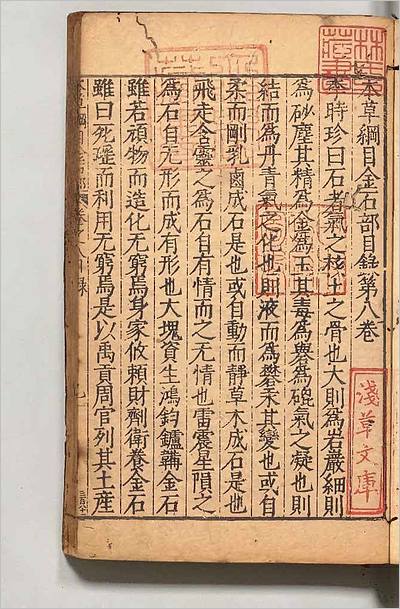 本草綱目金石部目錄第八卷
李時珍曰石者氣之核土之骨也大則爲岩巖細則
爲砂塵其精爲金爲玉其毒爲礜爲砒氣之凝也則
結而爲丹青氣之化也則液而爲礬汞其變也或自
柔而剛乳鹵成石是也或自動而靜草木成石是也
飛走含靈之爲石自有情而之无情也雷震星隕之
爲石自无形而成有形也大塊資生鴻鈞鑪鞴金石
雖若頑物而造化无窮焉身家攸賴財劑衛養金石
雖曰死瑤而利用无窮焉是以禹貢周官列其土産
淺草文庫